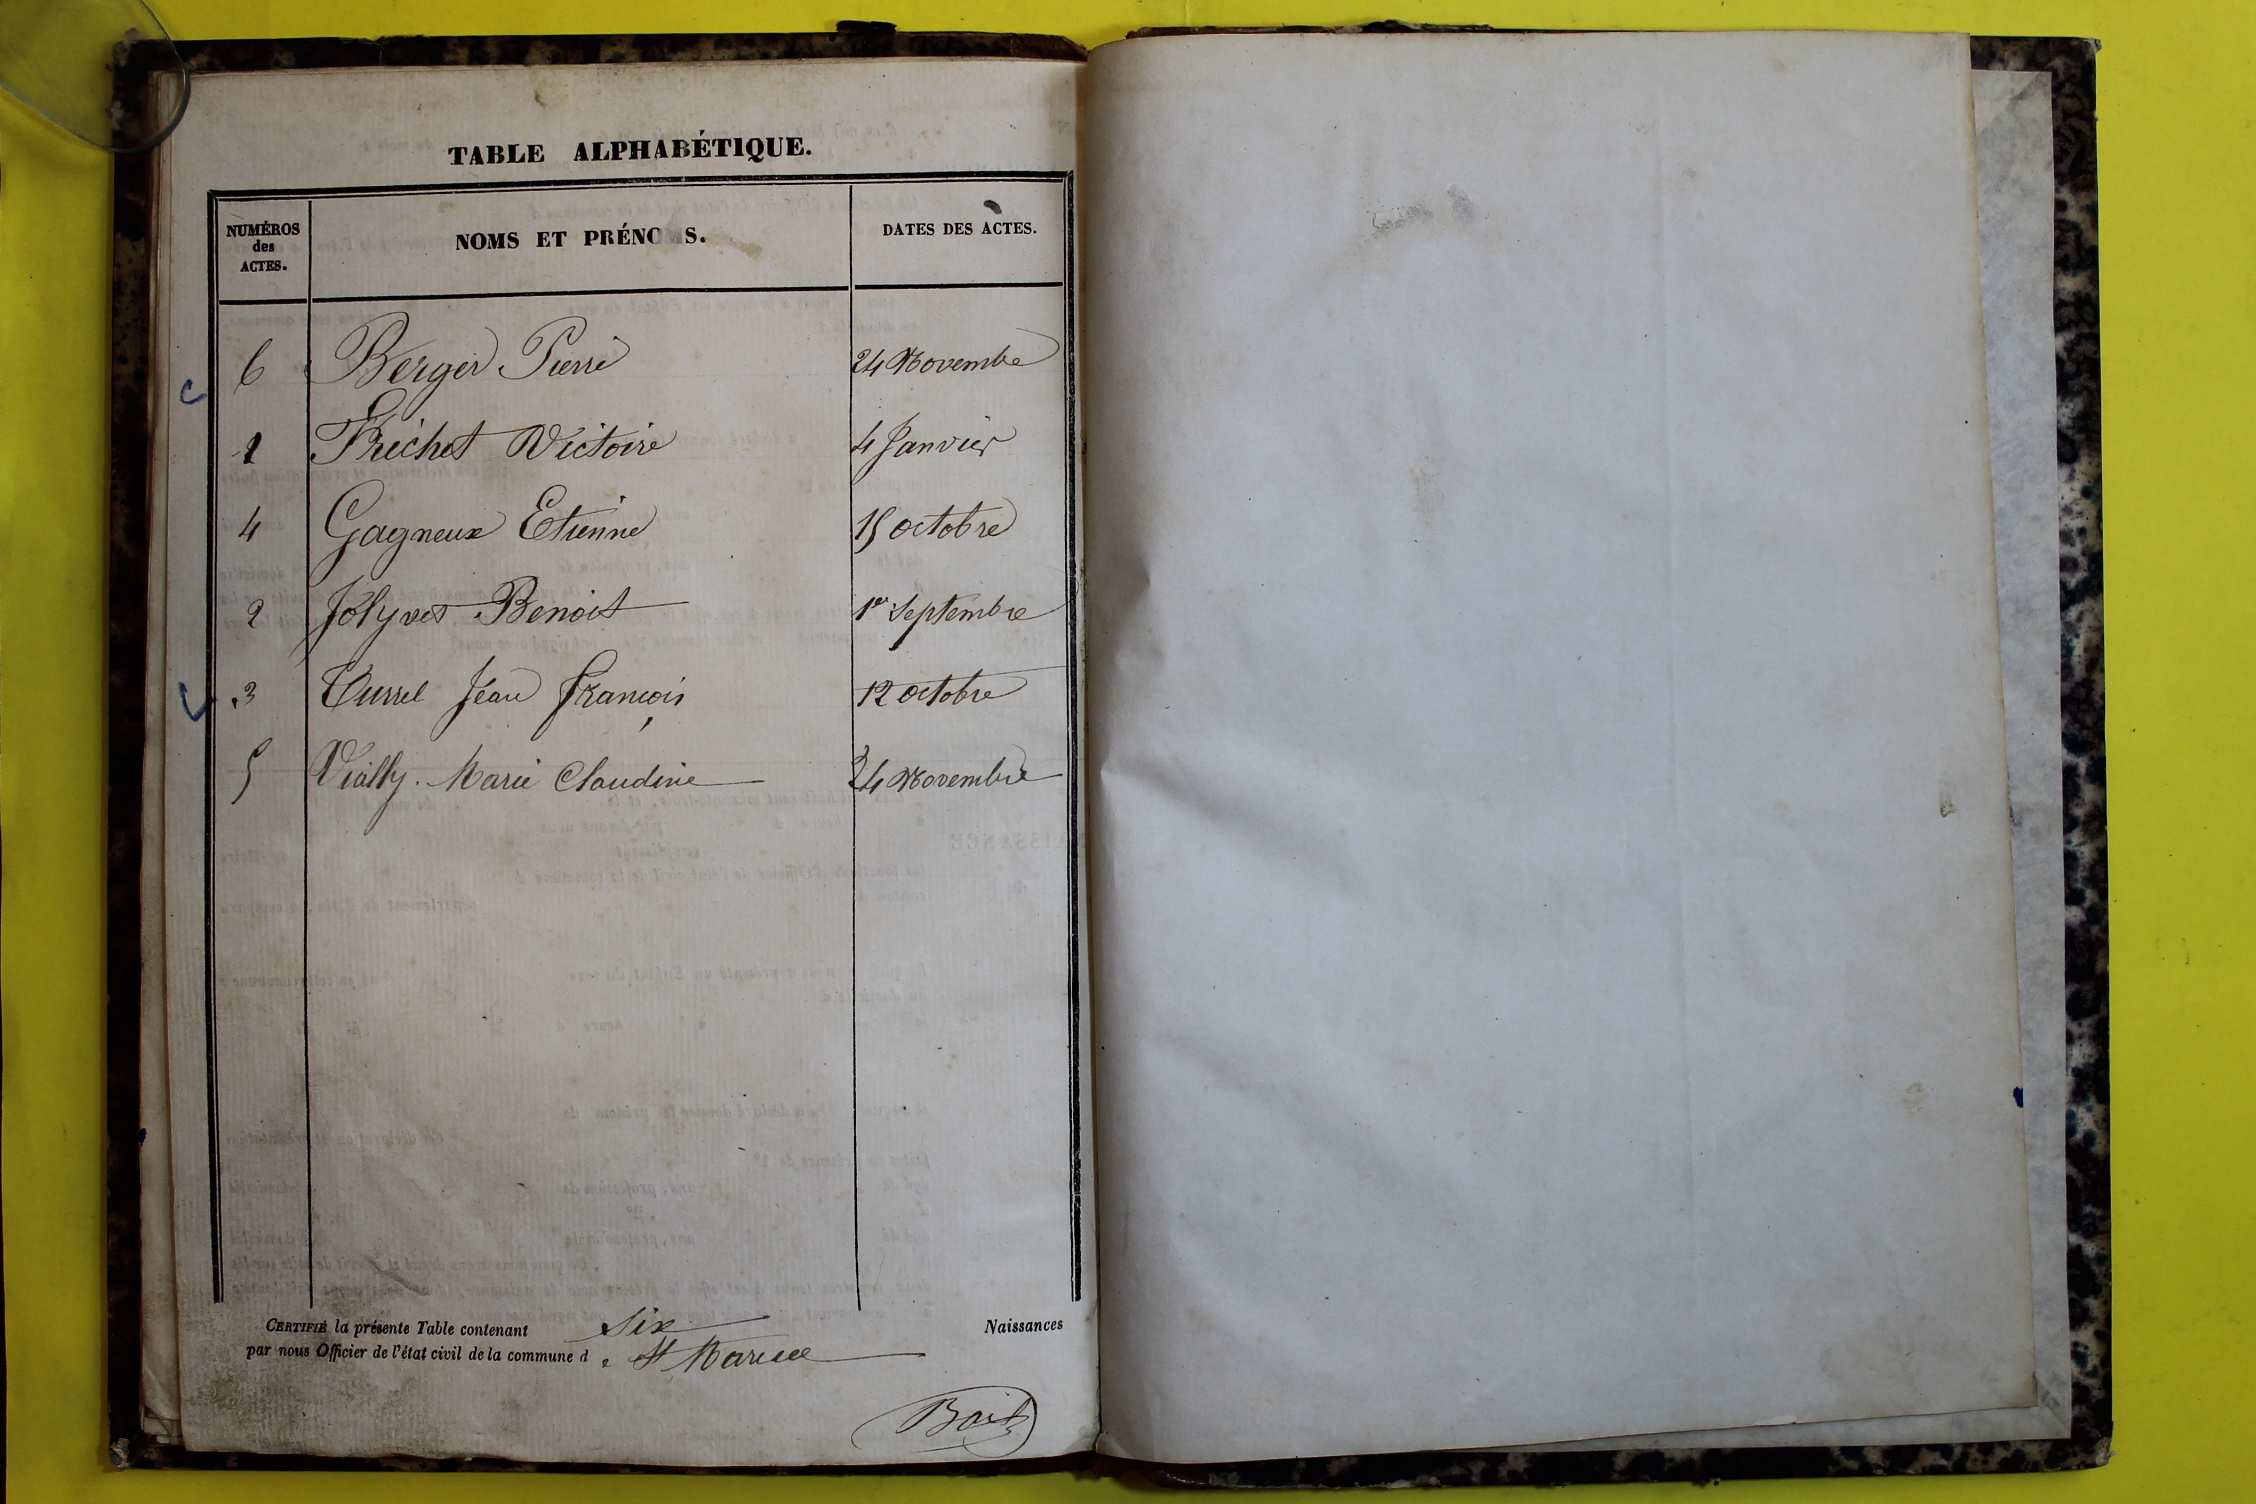 TABLE ALPHABÉTIQUE.
NUMÉROS des ACTES. NOMS ET PRÉNOMS. DATES DES ACTES.
6 Berger Pierre 24 Novembre
1 Fréchet Victoire 4 Janvier
4 Gagneux Etienne 15 octobre
2 Jolyvet Benoit 1er Septembre
3 Turrel Jean françois 12 octobre
5 Vially Marie Claudine 24 Novembre
CERTIFIÉ la présente Table contenant Six Naissances
par nous Officier de l'état civil de la commune de St Marcel